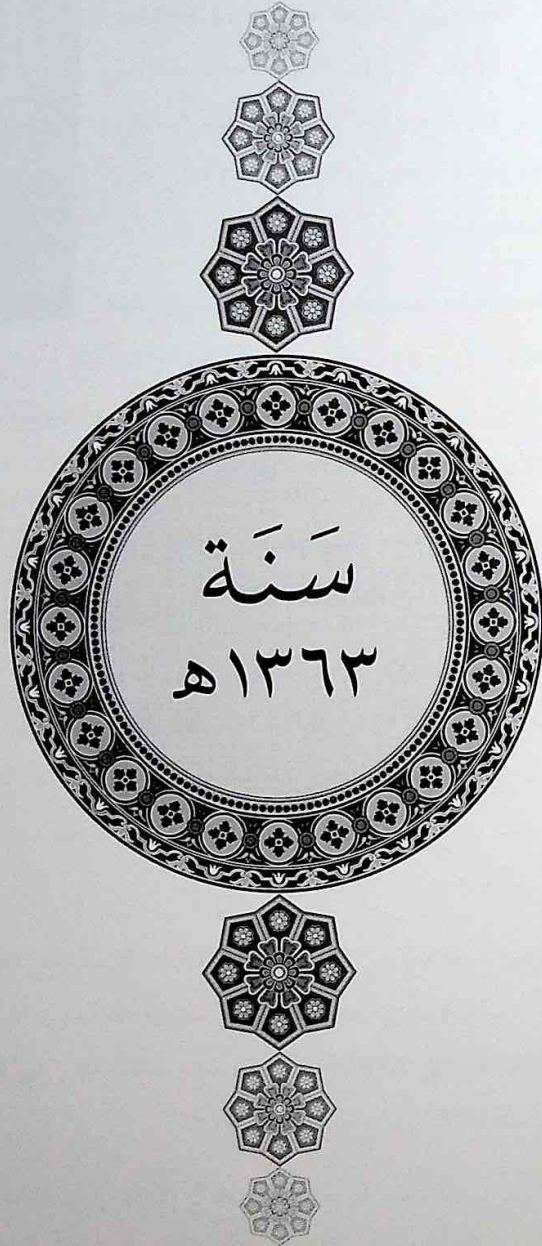 سَنَة
١٣٦٣ هـ